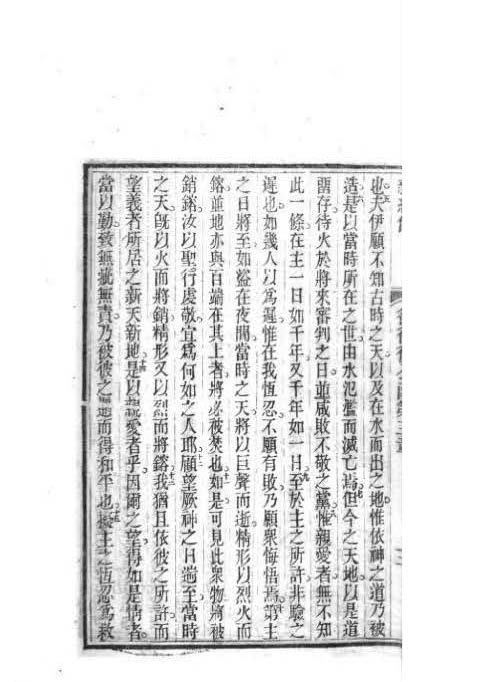 也夫伊願不知古時之天以及在水而出之地惟依神之道乃被
造是以當時所在之世由水氾濫而滅亡焉但今之天地以是道
謂存待火於將來審判之日並咸敗不敬之黨惟親愛者無不知
此一條在主一日如千年又千年如一日至於主之所許非驗之
遲也如幾人以為遲惟在我恆忍不願有敗乃願眾悔悟焉第主
之日將至如盜在夜間當時之天將以巨聲而逝精形以烈火而
鎔並地亦與百端在其上者將必被焚也如是可見此眾物將被
銷鎔汝以聖行虔敬宜為何如之人耶願望厥神之日趨至當時
之天旣以火而將銷精形又以烈而將鎔我猶且依彼之所許而
望義者所居之新天新地是以親愛者乎因爾之望得如是情者
當以勤致無疵無責乃被彼之遇而得和平也擬主之恆忍為救